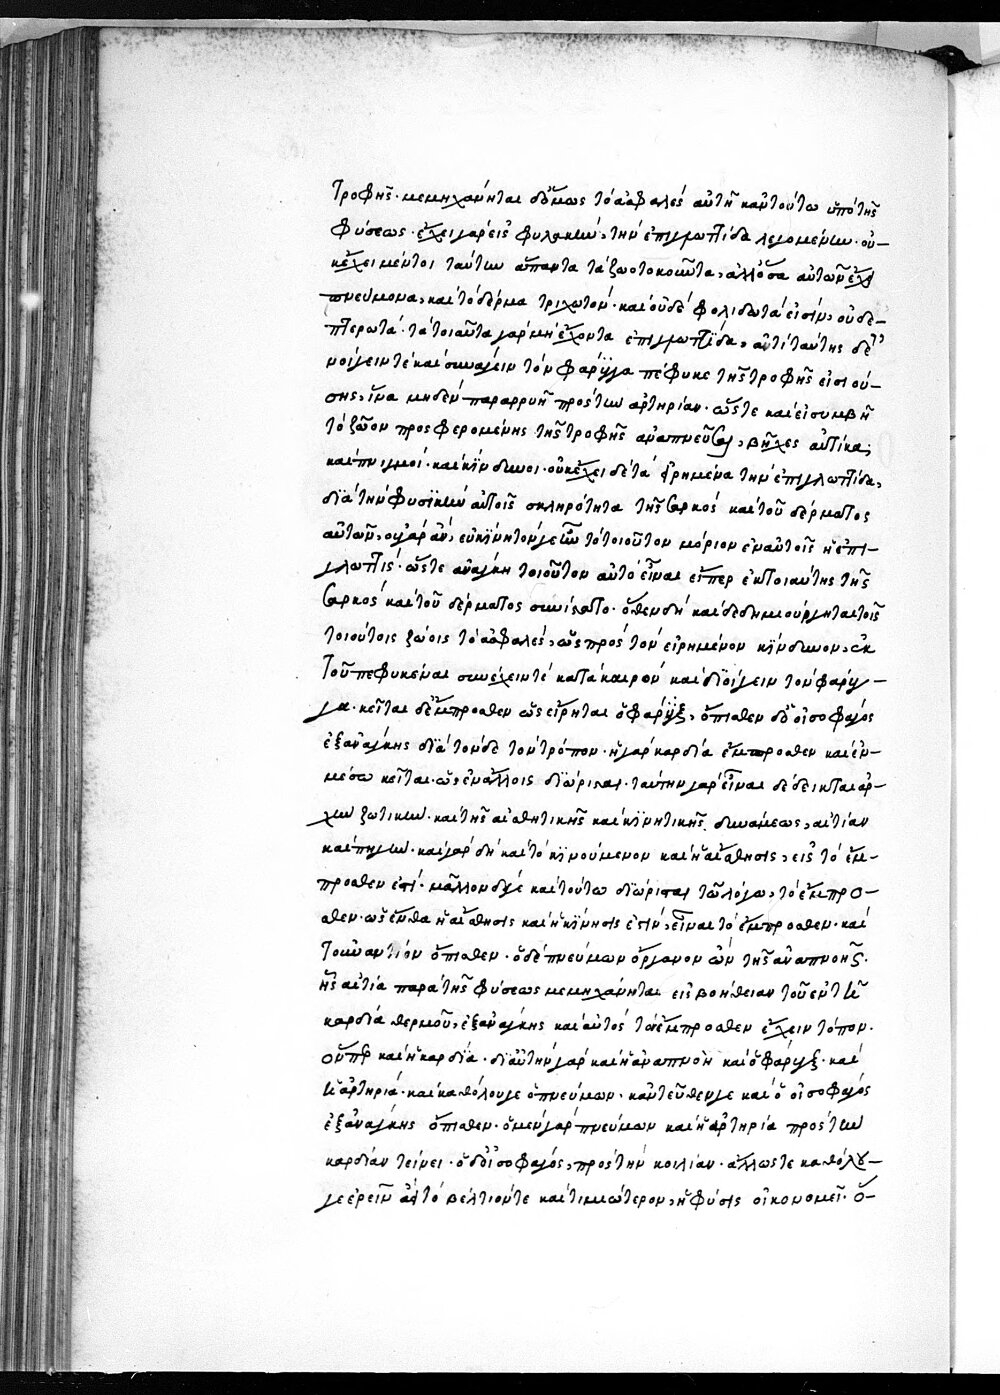 τροφῆς· μεμηχάνηται δ' ὅμως τὸ ἀσφαλὲς αὐτῇ κἂν τούτω ὑπὸ τῆς
φύσεως· ἔχει γὰρ εἰς φυλακὴν, τὴν ἐπιγλωττίδα λεγομένην· οὐ-
κ ἔχει μέντοι ταύτην ἅπαντα τὰ ζωοτοκοῦντα, ἀλλ' ὅσα αὐτῶν ἔχει
πνεύμονα, καὶ τὸ δέρμα τριχωτὸν· καὶ οὐδὲ φολιδωτά εἰσιν, οὐδὲ
πτερωτά· τὰ τοιαῦτα γὰρ μὴ ἔχοντα ἐπιγλωττίδα, ἀντὶ ταύτης
νοίγειν τὲ καὶ συνάγειν τὸν φάρυγγα πέφυκε τῆς τροφῆς εἰσιού-
σης, ἵνα μηδὲν παραρρυῇ πρὸς τὴν ἀρτηρίαν· ὥστε καὶ εἰ συμβῇ
τὸ ζῶον προσφερομένης τῆς τροφῆς ἀναπνεῦσαι, βῆχες αὐτίκα,
καὶ πνιγμοὶ· καὶ κίνδυνοι· οὐκ ἔχει δὲ τὰ εἰρημένα τὴν ἐπιγλωττίδα,
διὰ τὴν φυσικὴν αὐτοῖς σκληρότητα τῆς σαρκὸς καὶ τοῦ δέρματος
αὐτῶν, οὐ γὰρ ἂν, εὐκίνητον γε ἦν τὸ τοιοῦτον μόριον ἐν αὐτοῖς ἡ ἐπι-
γλωττὶς· ὥστε ἀνάγκη τοιοῦτον αὐτὸ εἶναι εἴπερ ἐκ τοιαύτης τῆς
σαρκὸς καὶ τοῦ δέρματος συνίστατο· ὅθεν δὴ καὶ δεδημιούργηται τοῖς
τοιούτοις ζώοις τὸ ἀσφαλὲς, ὡς πρὸς τὸν εἰρημένον κίνδυνον, ἐκ
τοῦ πεφυκέναι συνέχειν τὲ κατὰ καιρὸν καὶ διοίγειν τὸν φάρυγ-
γα· κεῖται δ' ἔμπροσθεν ὡς εἴρηται ὁ φάρυγξ, ὄπισθεν δ' ὁ οἰσοφάγος
ἐξ ἀνάγκης διὰ τόνδε τὸν τρόπον· ἡ γὰρ καρδία ἔμπροσθεν καὶ ἐν
μέσω κεῖται· ὡς ἐν ἄλλοις διώρισται· ταύτην γὰρ εἶναι δέδεικται ἀρ-
χὴν ζωτικὴν· καὶ τῆς αἰσθητικῆς καὶ κινητικῆς δυνάμεως, αἰτίαν
καὶ πηγὴν· καὶ γὰρ δὴ καὶ τὸ κινούμενον καὶ ἡ αἴσθησις, εἰς τὸ ἔμ-
προσθεν ἐστὶ· μᾶλλον δέ γε καὶ τούτω διώρισται τῶ λόγω, τὸ ἔμπρο-
σθεν· ὡς ἔνθα ἡ αἴσθησις καὶ ἡ κίνησις ἐστὶν, εἶναι τὸ ἔμπροσθεν· καὶ
τοὐναντίον ὄπισθεν· ὁ δὲ πνεύμων ὄργανον ὢν τῆς ἀναπνοῆς·
ἧς αἰτία παρὰ τῆς φύσεως μεμηχάνηται εἰς βοήθειαν τοῦ ἐν τῆ
καρδία θερμοῦ, ἐξ ἀνάγκης καὶ αὐτὸς τὸν ἔμπροσθεν ἔχειν τόπον·
οὗπερ καὶ ἡ καρδία· δι' αὐτὴν γὰρ καὶ ἡ ἀναπνοὴ καὶ ὁ φάρυγξ· καὶ
ἡ ἀρτηρία· καὶ καθόλου γε ὁ πνεύμων· κἀντεῦθέν γε καὶ ὁ οἰσοφάγος
ἐξ ἀνάγκης ὄπισθεν· ὁ μὲν γὰρ πνεύμων καὶ ἡ ἀρτηρία πρὸς τὴν
καρδίαν τείνει· ὁ δ' οἰσοφάγος, πρὸς τὴν κοιλίαν· ἄλλωστε καθόλου
γε ἐρεῖν ἀεὶ τὸ βέλτιόν τε καὶ τιμιώτερον, ἡ φύσις οἰκονομεῖ· ὅ-